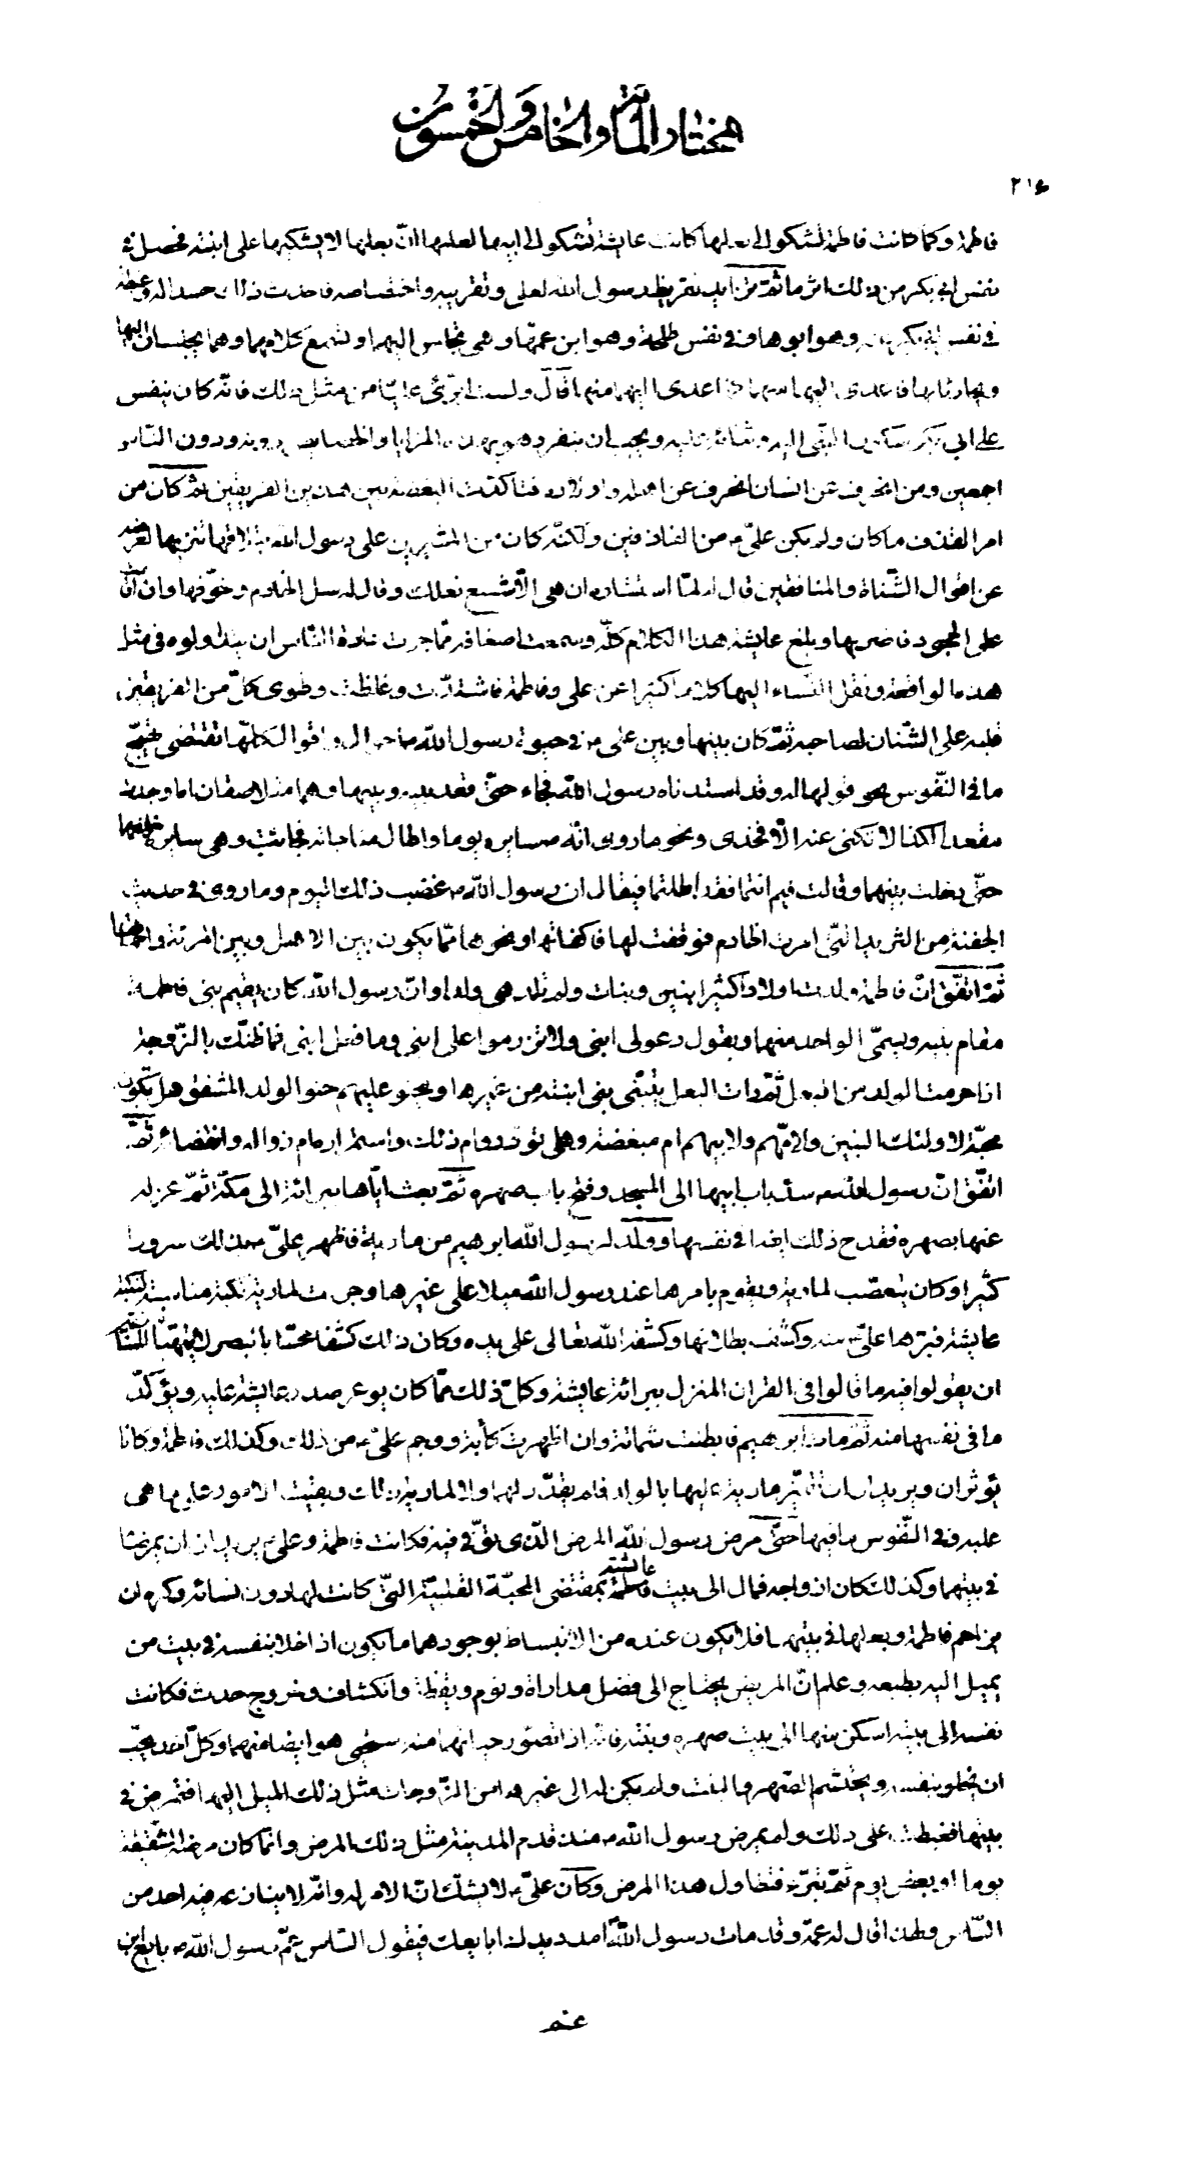 مختار المائة والخامس والخمسون
٢١٤
فاطمة وكما كانت فاطمة تشكو الى بعلها كانت عايشة تشكو الى ابيها لعلمها انّ بعلها لا يشكيها على ابنته فحصل في
نفس ابي بكر من ذلك اثر ما ثمّ تزايد تقريظ رسول الله لعلي وتقريبه واختصاصه فاحدث ذلك حسدا له وغبطة
في نفس ابي بكر وهو ابوها وفي نفس طلحة وهو ابن عمّها وهي تجلس اليهما وتسمع كلامهما وهما يجلسان اليها
ويحادثانها فاعدى اليها منهما كما اعدى اليهما منها قال ولست ابرّئ عليّا من مثل ذلك فانّه كان ينفس
على ابي بكر سكون النبي اليه وثنائه عليه ويحب ان ينفرد هو بهذه المزايا والخصايص دونه ودون الناس
اجمعين ومن انحرف عن انسان انحرف عن اهله واولاده فتاكّدت البغضة بين هذين الفريقين ثم كان من
امر القذف ما كان ولم يكن عليّ من القاذفين ولكنّه كان من المشيرين على رسول الله بطلاقها تنزيها لعرضه
عن اقوال الشّناة والمنافقين قال له لمّا استشاره ان هي الّا شسع نعلك وقال له سل الخادم وخوّفها وان اقامت
على الجحود فاضربها وبلغ عايشة هذا الكلام كلّه وسمعت اضعافه ممّا جرت عادة النّاس ان يتداولوه في مثل
هذه الواقعة ونقل النّساء اليها كلاما كثيرا عن علي وفاطمة فاشتدّت وغلظت وطوى كلّ من الفريقين
قلبه على الشّنان لصاحبه ثمّ كان بينها وبين علي في حيوة رسول الله احوال واقوال كلّها تقتضي تهييج
ما في النّفوس نحو قولها له وقد استدناه رسول الله فجاء حتّى قعد بينه وبينها وهما متلاصقان اما وجدت
مقعدا لكذا لا تكنّي عنه الّا فخذي ونحو ما روي انّه سايره يوما واطال مناجاته فجائت وهي سايرة خلفهما
حتّى دخلت بينهما وقالت فيم انتما فقد اطلتما فيقال ان رسول الله غضب ذلك اليوم وما روي في حديث
الجفنة من الثريد الّتي امرت الخادم فوقفت لها فاكفاتها ونحوهما ممّا يكون بين الاهل وبين المرئة واحمائها
ثمّ اتّفق انّ فاطمة ولدت اولادا كثيرا بنين وبنات ولم تلد هي ولدا وانّ رسول الله كان يقيم بني فاطمة
مقام بنيه ويسمّي الواحد منهما ويقول دعو لي ابني ولا تزرموا على ابني وما فعل ابني فما ظنّك بالزّوجة
اذا حرمت الولد من البعل ثمّ رات البعل يتبنّى بني ابنته من غيرها ويحنو عليهم حنو الوالد المشفق هل تكون
محبّة لاولئك البنين ولامّهم ولابيهم ام مبغضة وهل تودّ دوام ذلك واستمراره ام زواله وانقضائه ثمّ
اتّفق انّ رسول الله سدّ باب ابيها الى المسجد وفتح باب صهره ثمّ بعث اباها ببرائة الى مكّة ثمّ عزله
عنها بصهره فقدح ذلك ايضا في نفسها وولد لرسول الله ابرهيم من مارية فاظهر عليّ بذلك سرورا
كثيرا وكان يتعصّب لمارية ويقوم بامرها عند رسول الله ميلا على غيرها وجرت لمارية نكبة مناسبة لنكبة
عايشة فبرّها عليّ منه وكشف بطلانها وكشفه الله تعالى على يده وكان ذلك كشفا محسّا بالبصر لا يتهيّأ للمنافقين
ان يقولوا فيه ما قالوا في القران المنزل ببرائة عايشة وكلّ ذلك ممّا كان يوغر صدر عايشة عليه ويؤكّد
ما في نفسها منه ثمّ مات ابرهيم فابطنت شماتة وان اظهرت كآبة ووجم عليّ من ذلك وكذلك فاطمة وكانا
يؤثران ويريدان ان تتميّز مارية عليها بالولد فلم يقدّر لهما ولا لمارية ذلك وبقيت الامور على ما هي
عليه وفي النّفوس ما فيها حتّى مرض رسول الله المرض الّذي توفّي فيه فكانت فاطمة وعليّ يريدان ان يمرضاه
في بيتهما وكذلك كان ازواجه فمال الى بيت عايشة بمقتضى المحبّة القلبيّة الّتي كانت لها دون نسائه وكره ان
يزاحم فاطمة وبعلها في بيتهما فلا يكون عنده من الانبساط بوجودهما ما يكون اذا خلا بنفسه في بيت من
يميل اليه بطبعه وعلم انّ المريض يحتاج الى فضل مداراة ونوم ويقظة وانكشاف وخروج حدث فكانت
نفسه الى بيته اسكن منها الى بيت صهره وبنته فانّه اذا تصوّر حيائهما منه استحيى هو ايضا منهما وكلّ احد يحبّ
ان يخلو بنفسه ويحتشم الصّهر والبنت ولم يكن له الى غيرها من الزّوجات مثل ذلك الميل اليها فتمرّض في
بيتها فغبطت على ذلك ولم يمرض رسول الله منذ قدم المدينة مثل ذلك المرض وانّما كان مرضه الشقيقة
يوما او بعض يوم ثمّ تبرّء فتطاول هذا المرض وكان عليّ لا يشكّ انّ الامر له وانّه لا ينازعه فيه احد من
النّاس ولهذا قال له عمّه وقد مات رسول الله امدد يدك ابايعك فيقول النّاس عمّ رسول الله بايع ابن
عم